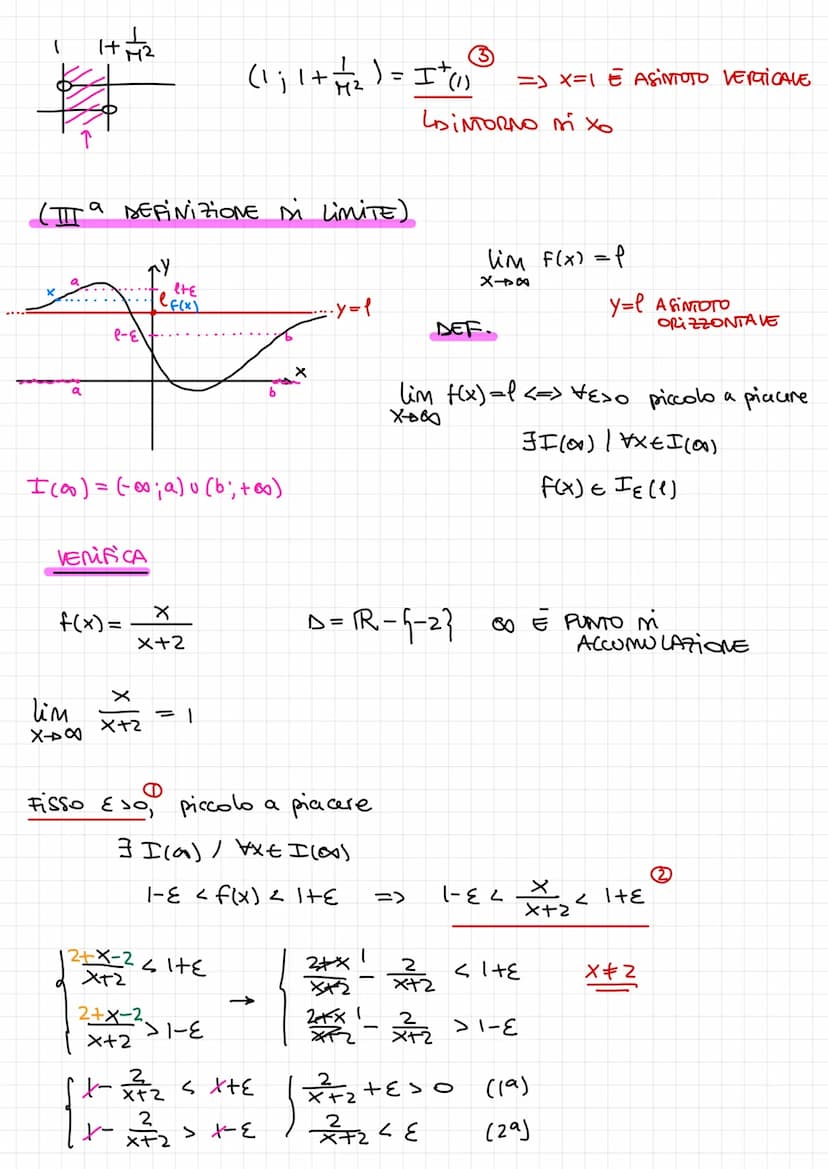 1 1+1/M²
(1 ; 1+1/M²) = I⁺(1) ③ => x=1 È ASINTOTO VERTICALE
↳ INTORNO DI x₀
(IIIª DEFINIZIONE DI LIMITE)
y
a l+ε
x l f(x)
y=l
l-ε b
x
a b
lim f(x) = l
x→∞
y=l ASINTOTO
ORIZZONTALE
DEF.
lim f(x)=l <=> ∀ε>0 piccolo a piacere
x→∞
∃I(∞) / ∀x∈I(∞)
f(x) ∈ Iε(l)
I(∞) = (-∞;a) ∪ (b;+∞)
VERIFICA
f(x) = x/(x+2) D = ℝ - {-2} ∞ È PUNTO DI
ACCUMULAZIONE
lim x/(x+2) = 1
x→∞
FISSO ε>0, ① piccolo a piacere
∃ I(∞) / ∀x∈ I(∞)
1-ε < f(x) < 1+ε => 1-ε < x/(x+2) < 1+ε ②
{ (2+x-2)/(x+2) < 1+ε → { (2+x)/(x+2) 1 - 2/(x+2) < 1+ε x≠2
{ (2+x-2)/(x+2) > 1-ε { (2+x)/(x+2) 1 - 2/(x+2) > 1-ε
{ 1 - 2/(x+2) < 1+ε { 2/(x+2) + ε > 0 (1ª)
{ 1 - 2/(x+2) > 1-ε { 2/(x+2) < ε (2ª)